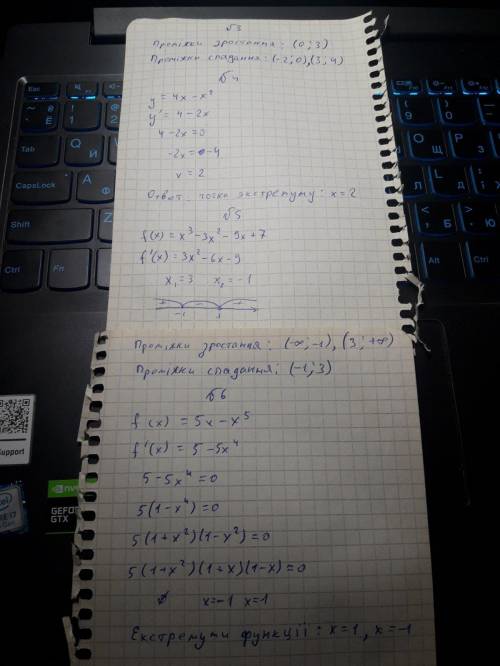 №3
Проміжки зростання: (0; 3)
Проміжки спадання: (-2; 0), (3; 4)
№4
y = 4x - x²
y' = 4 - 2x
4 - 2x = 0
-2x = -4
x = 2
Ответ точка экстремуму: x = 2
№5
f(x) = x³ - 3x² - 9x + 7
f'(x) = 3x² - 6x - 9
x₁ = 3 x₂ = -1
+ - +
-1 3
Проміжки зростання: (-∞; -1), (3; +∞)
Проміжки спадання: (-1; 3)
№6
f(x) = 5x - x⁵
f'(x) = 5 - 5x⁴
5 - 5x⁴ = 0
5(1 - x⁴) = 0
5(1 + x²)(1 - x²) = 0
5(1 + x²)(1 + x)(1 - x) = 0
∅ x = -1 x = 1
Екстремуми функції: x = 1, x = -1
Esc
Tab
CapsLock
Shift
Ctrl
Fn
Alt
Ctrl
Support
intel
NVIDIA
GEFORCE
GTX